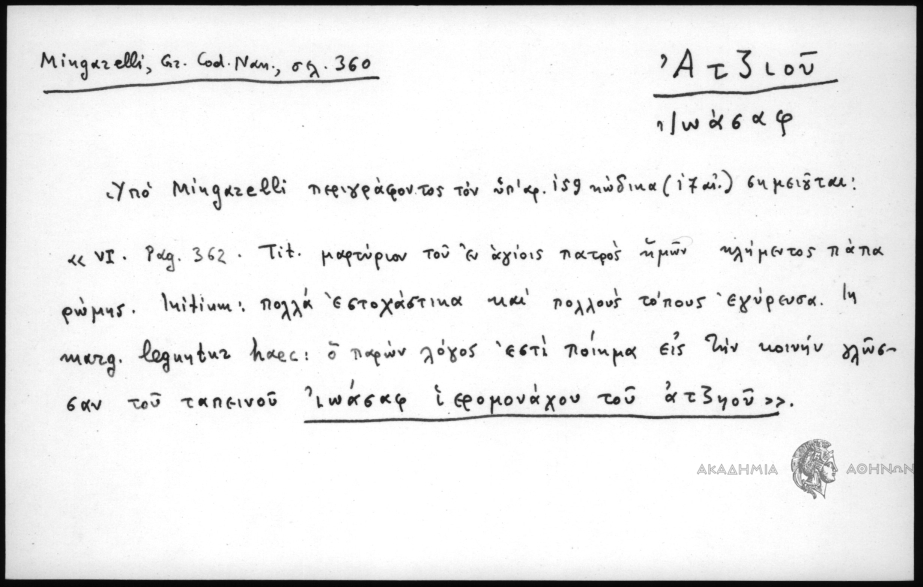 Mingarelli, Gr. Cod. Nan., σελ. 360
Ἀτζιοῦ
Ἰωάσαφ
Ὑπὸ Mingarelli περιγράφοντος τὸν ὑπ' ἀρ. 159 κώδικα (17 αἰ.) σημειοῦται:
«VI. Pag. 362. Tit. μαρτύριον τοῦ ἐν ἁγίοις πατρὸς ἡμῶν κλήμεντος πάπα
ρώμης. Initium: πολλά ἐστοχάστικα καὶ πολλούς τόπους ἐγύρευσα. In
marg. leguntur haec: ὁ παρών λόγος ἐστὶ ποίημα εἰς τὴν κοινήν γλῶσ-
σαν τοῦ ταπεινοῦ Ἰωάσαφ ἱερομονάχου τοῦ ἀτζηοῦ».
ΑΚΑΔΗΜΙΑ ΑΘΗΝΩΝ